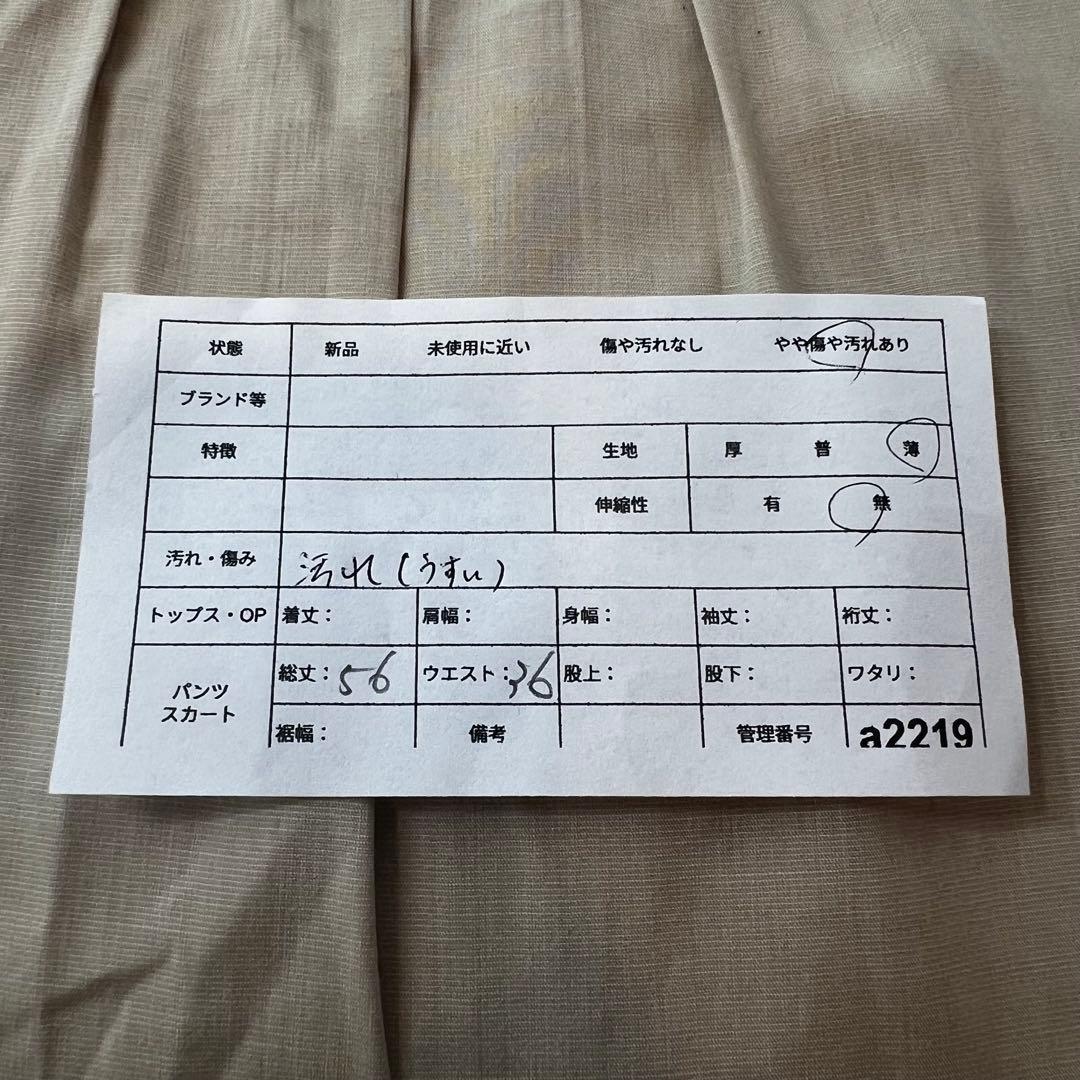 状態 新品 未使用に近い 傷や汚れなし やや傷や汚れあり
ブランド等
特徴 生地 厚 普 薄
伸縮性 有 無
汚れ・傷み 汚れ(うすい)
トップス・OP 着丈: 肩幅: 身幅: 袖丈: 裄丈:
パンツ スカート 総丈:56 ウエスト:36 股上: 股下: ワタリ:
裾幅: 備考 管理番号 a2219